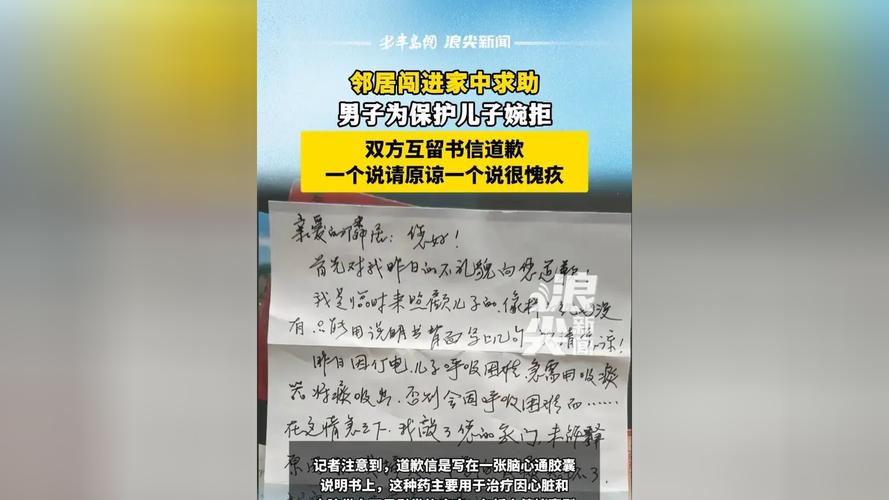 半岛网 浪尖新闻
邻居闯进家中求助
男子为保护儿子婉拒
双方互留书信道歉
一个说请原谅一个说很愧疚
亲爱的邻居：您好！
首先对我昨日的不礼貌向您道歉！
我是临时来照顾儿子的，像样 没
有，只能用说明书背面写上几句 请 谅！
昨日因停电，儿子呼吸困难，急需用吸痰
器将痰吸出，否则会因呼吸困难而……
在这情急之下，我敲了您的家门，未解释
浪尖新闻
记者注意到，道歉信是写在一张脑心通胶囊
说明书上，这种药主要用于治疗因心脏和